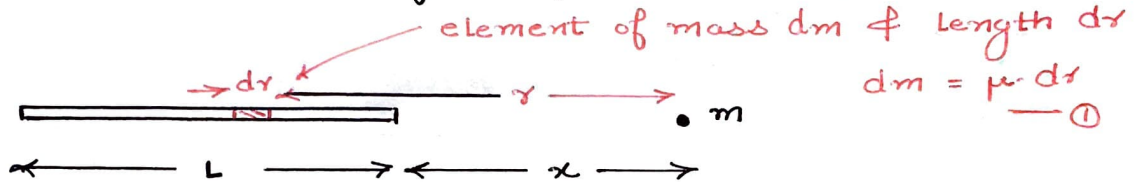 element of mass dm & Length dr
dr
dm = μ· dr
r
m
— ①
L
x